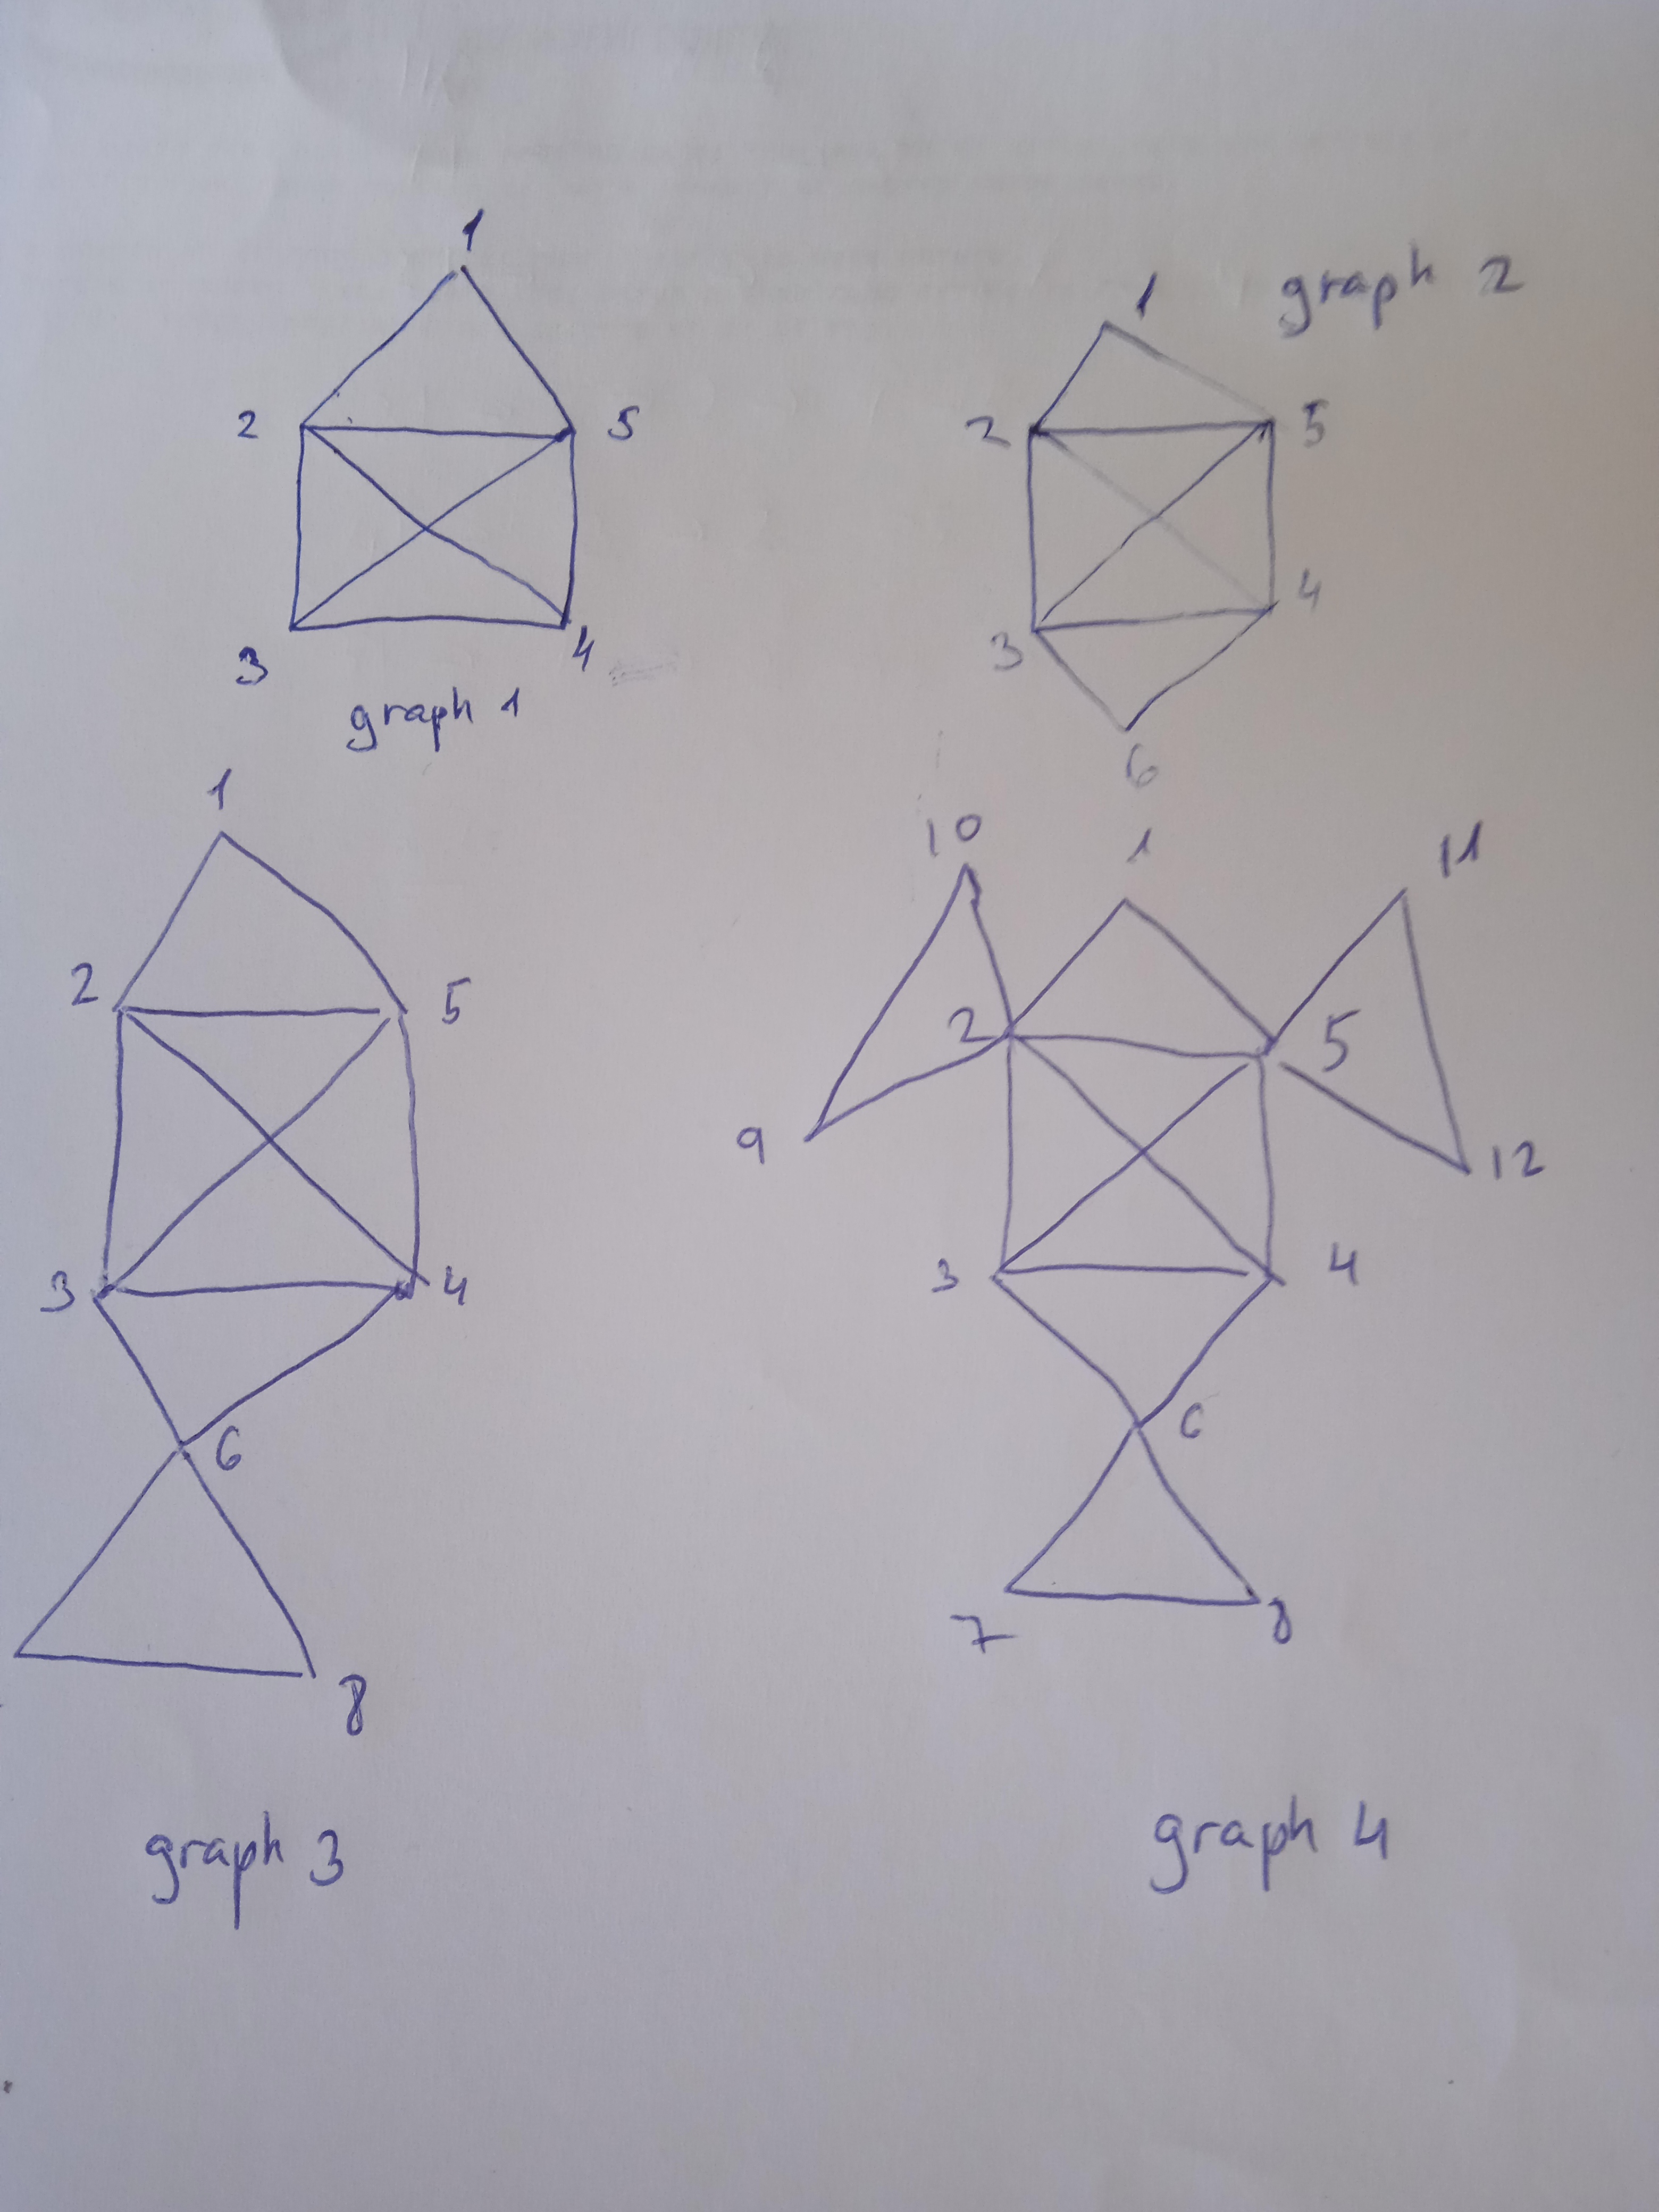 1
2 5
3 4
graph 1
graph 2
1
2 5
3 4
6
1
2 5
3 4
6
8
graph 3
10 1 11
2 5
9 12
3 4
6
7 8
graph 4